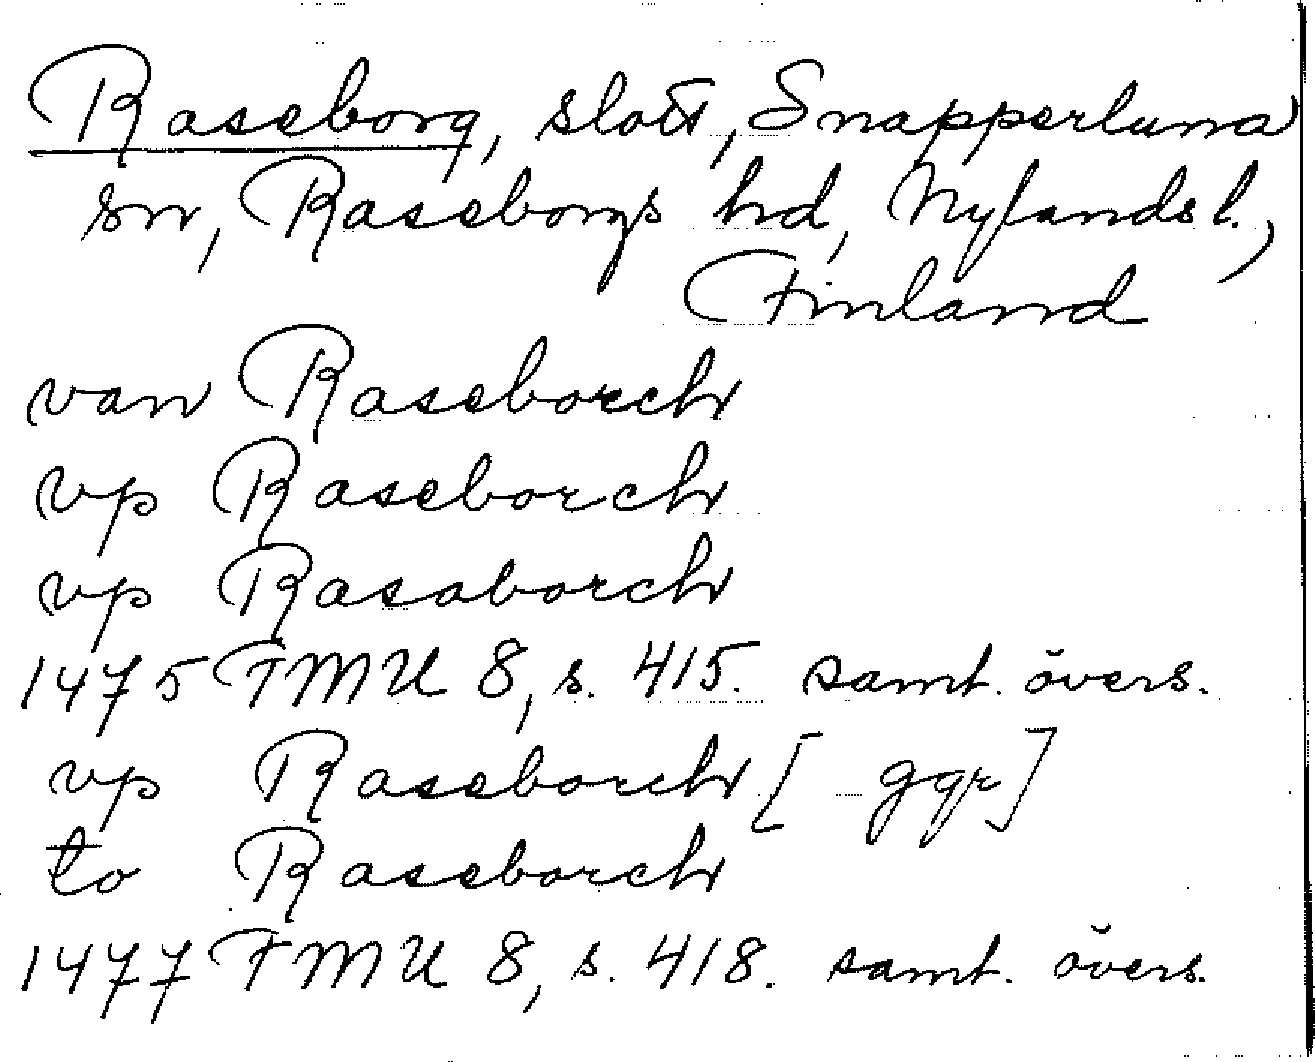 Raseborg, slott, Snappertuna
sn, Raseborgs hd, Nylands l.,
Finland
van Raseborch
vp Raseborch
vp Rasaborch
1475 FMU 8, s. 415. samt. övers.
vp Raseborch [ ggr]
to Raseborch
1477 FMU 8, s. 418. samt. övers.